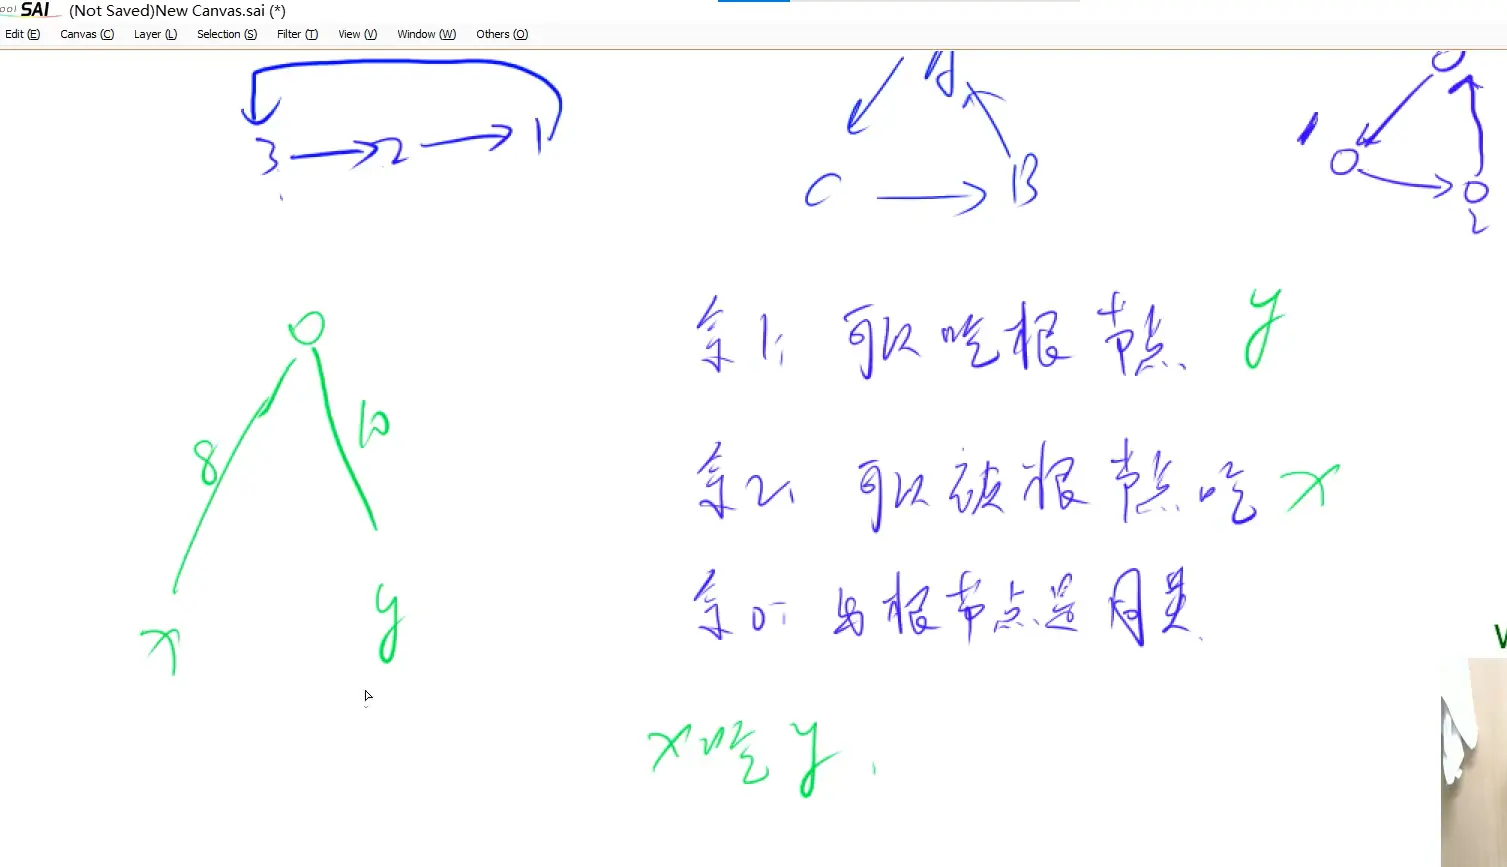 SAI (Not Saved)New Canvas.sai (*)
Edit (E) Canvas (C) Layer (L) Selection (S) Filter (T) View (V) Window (W) Others (O)
3 2 1
A
C B
1
2
余1: 可以吃根节点 y
8 10
余2: 可以被根节点吃 x
余0: 与根节点是同类
x y
x吃y